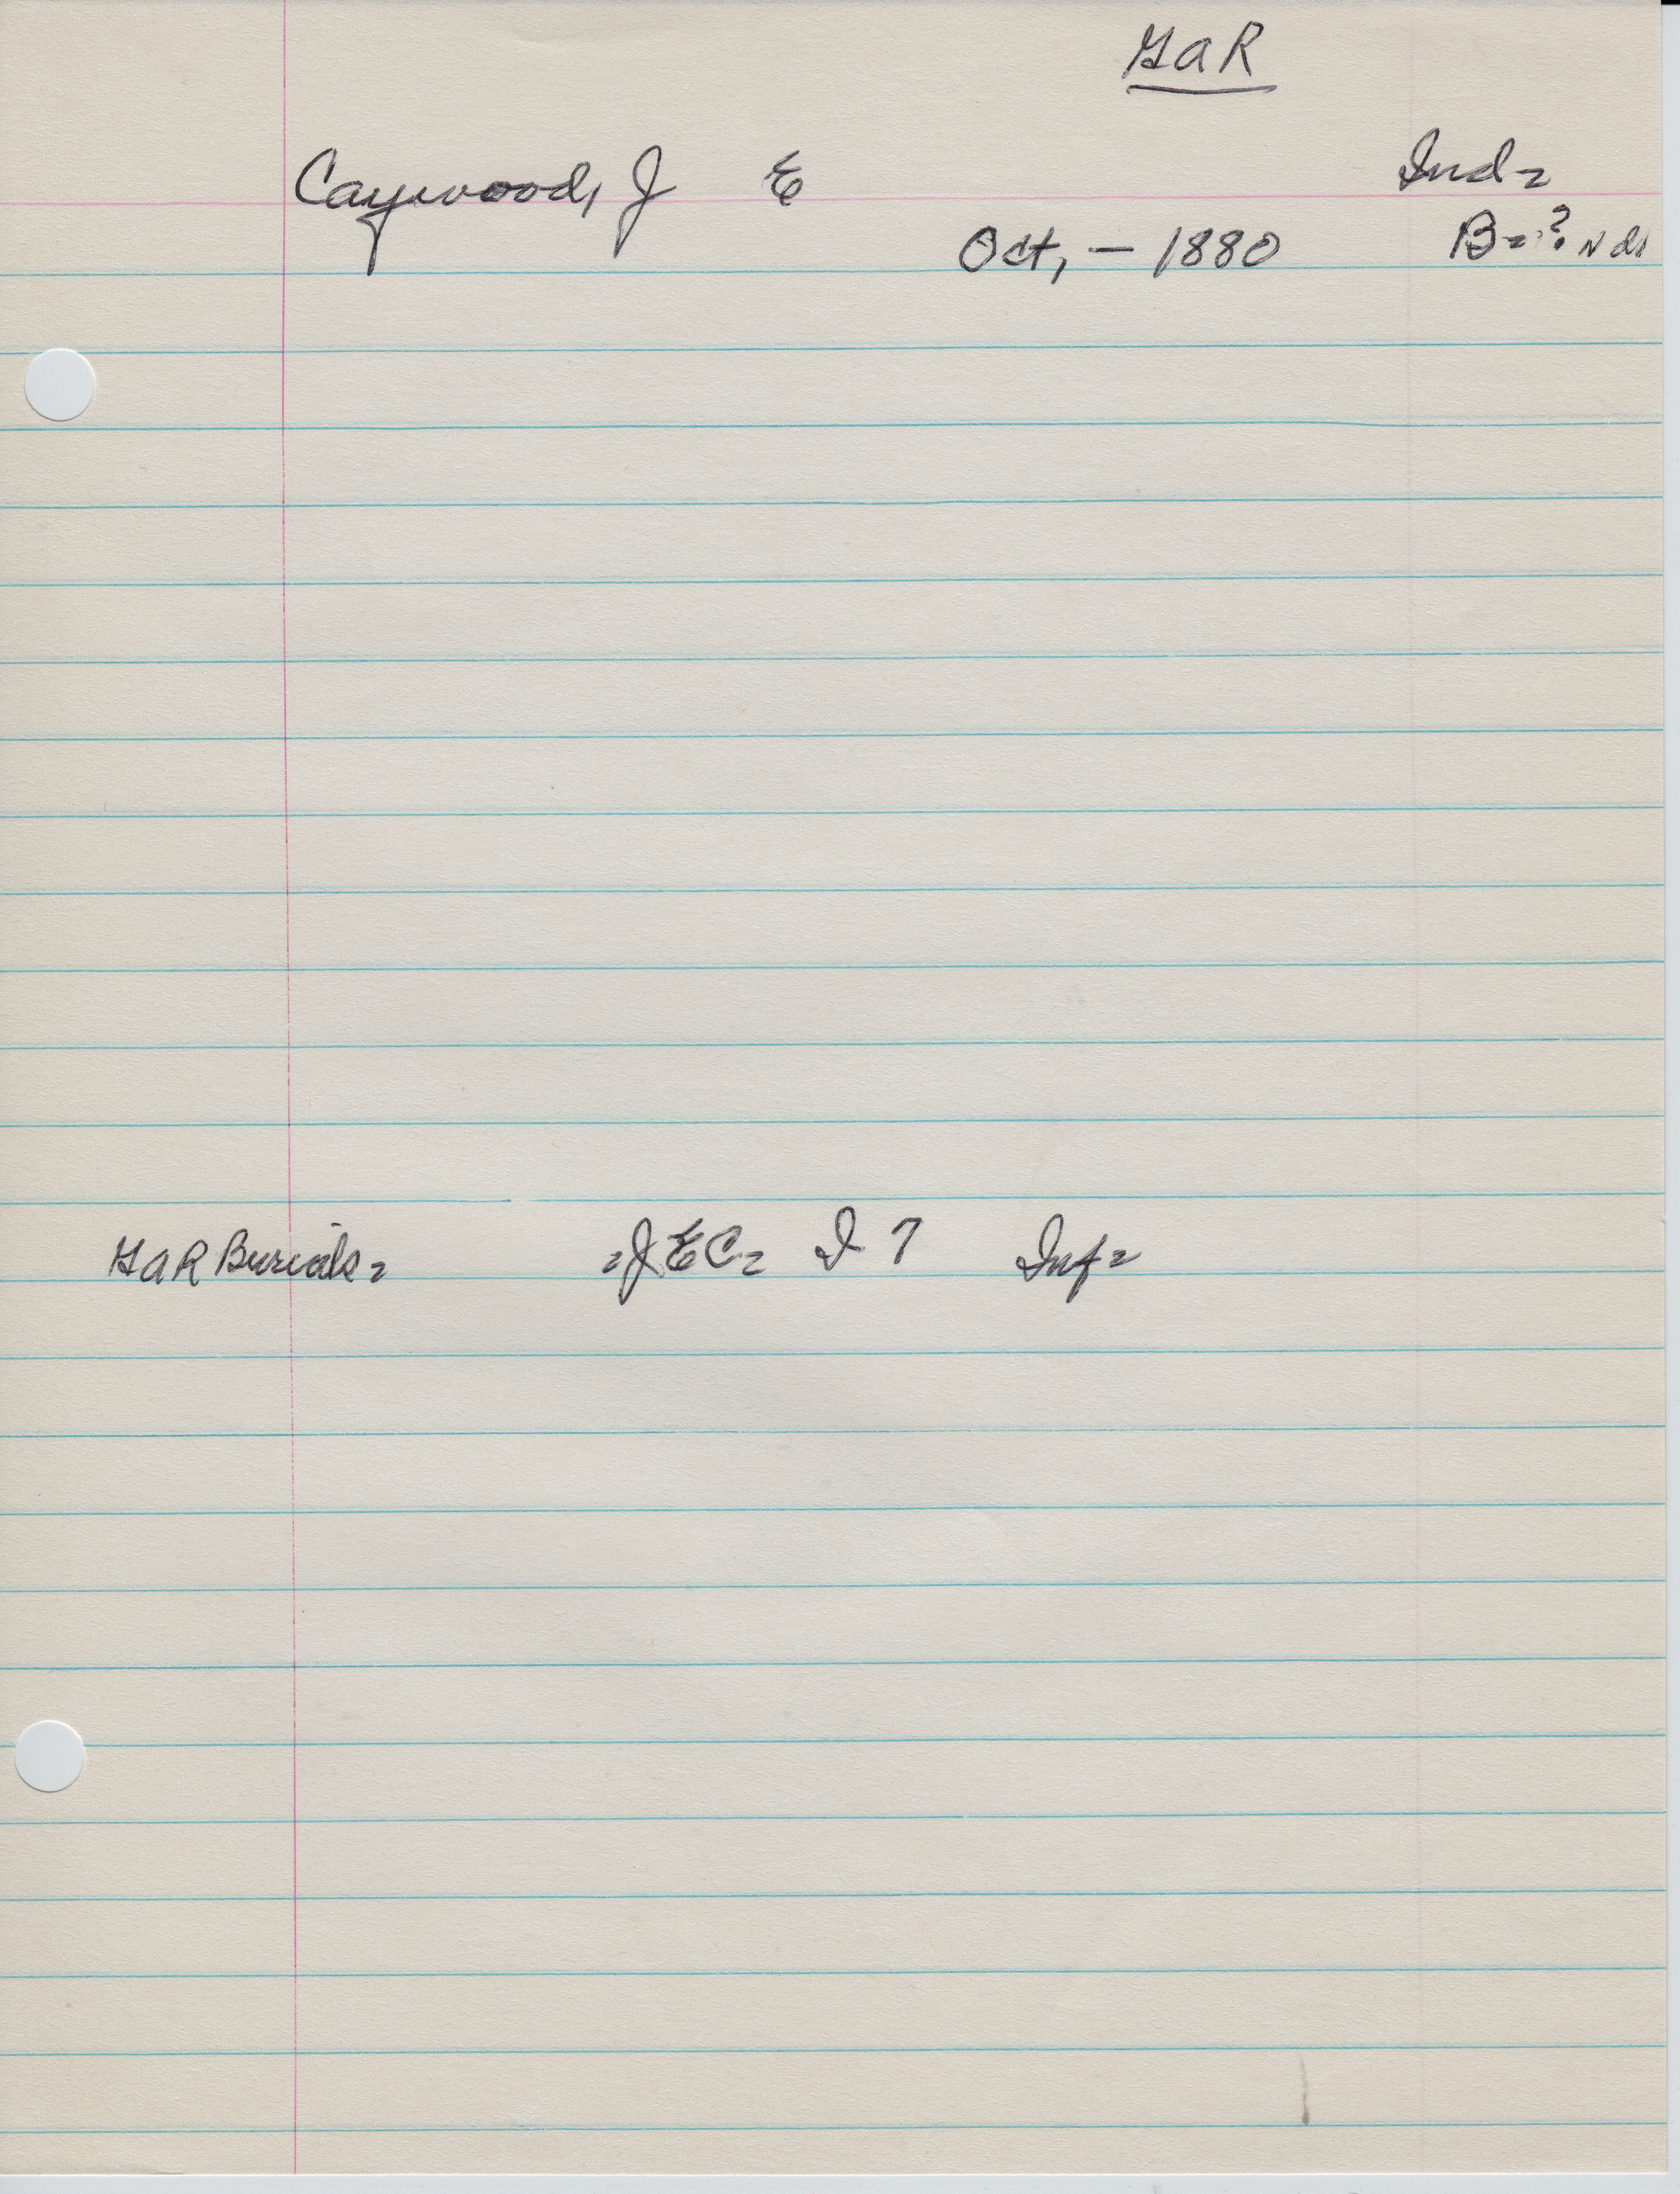 GaR
Caywood, J E Ind=
Oct, — 1880 B=?
GaR Burials= =JEC= I 7 Inf=